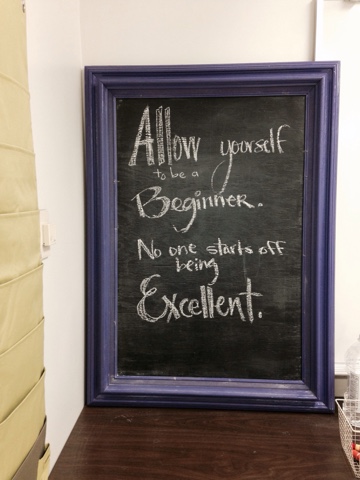 Allow yourself
to be a
Beginner.
No one starts off
being
Excellent.